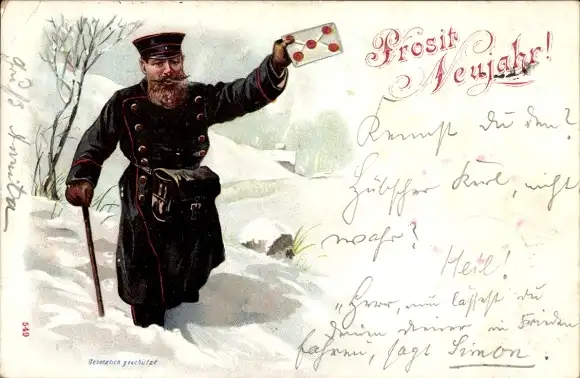 Prosit
Neujahr!
Kennst du den?
Hübscher Kerl, nicht
wahr?
Heil!
"Herr, nun lässest du
deinen diener in Frieden
fahren, sagt Simon.
Gruß
549
Gesetzlich geschützt